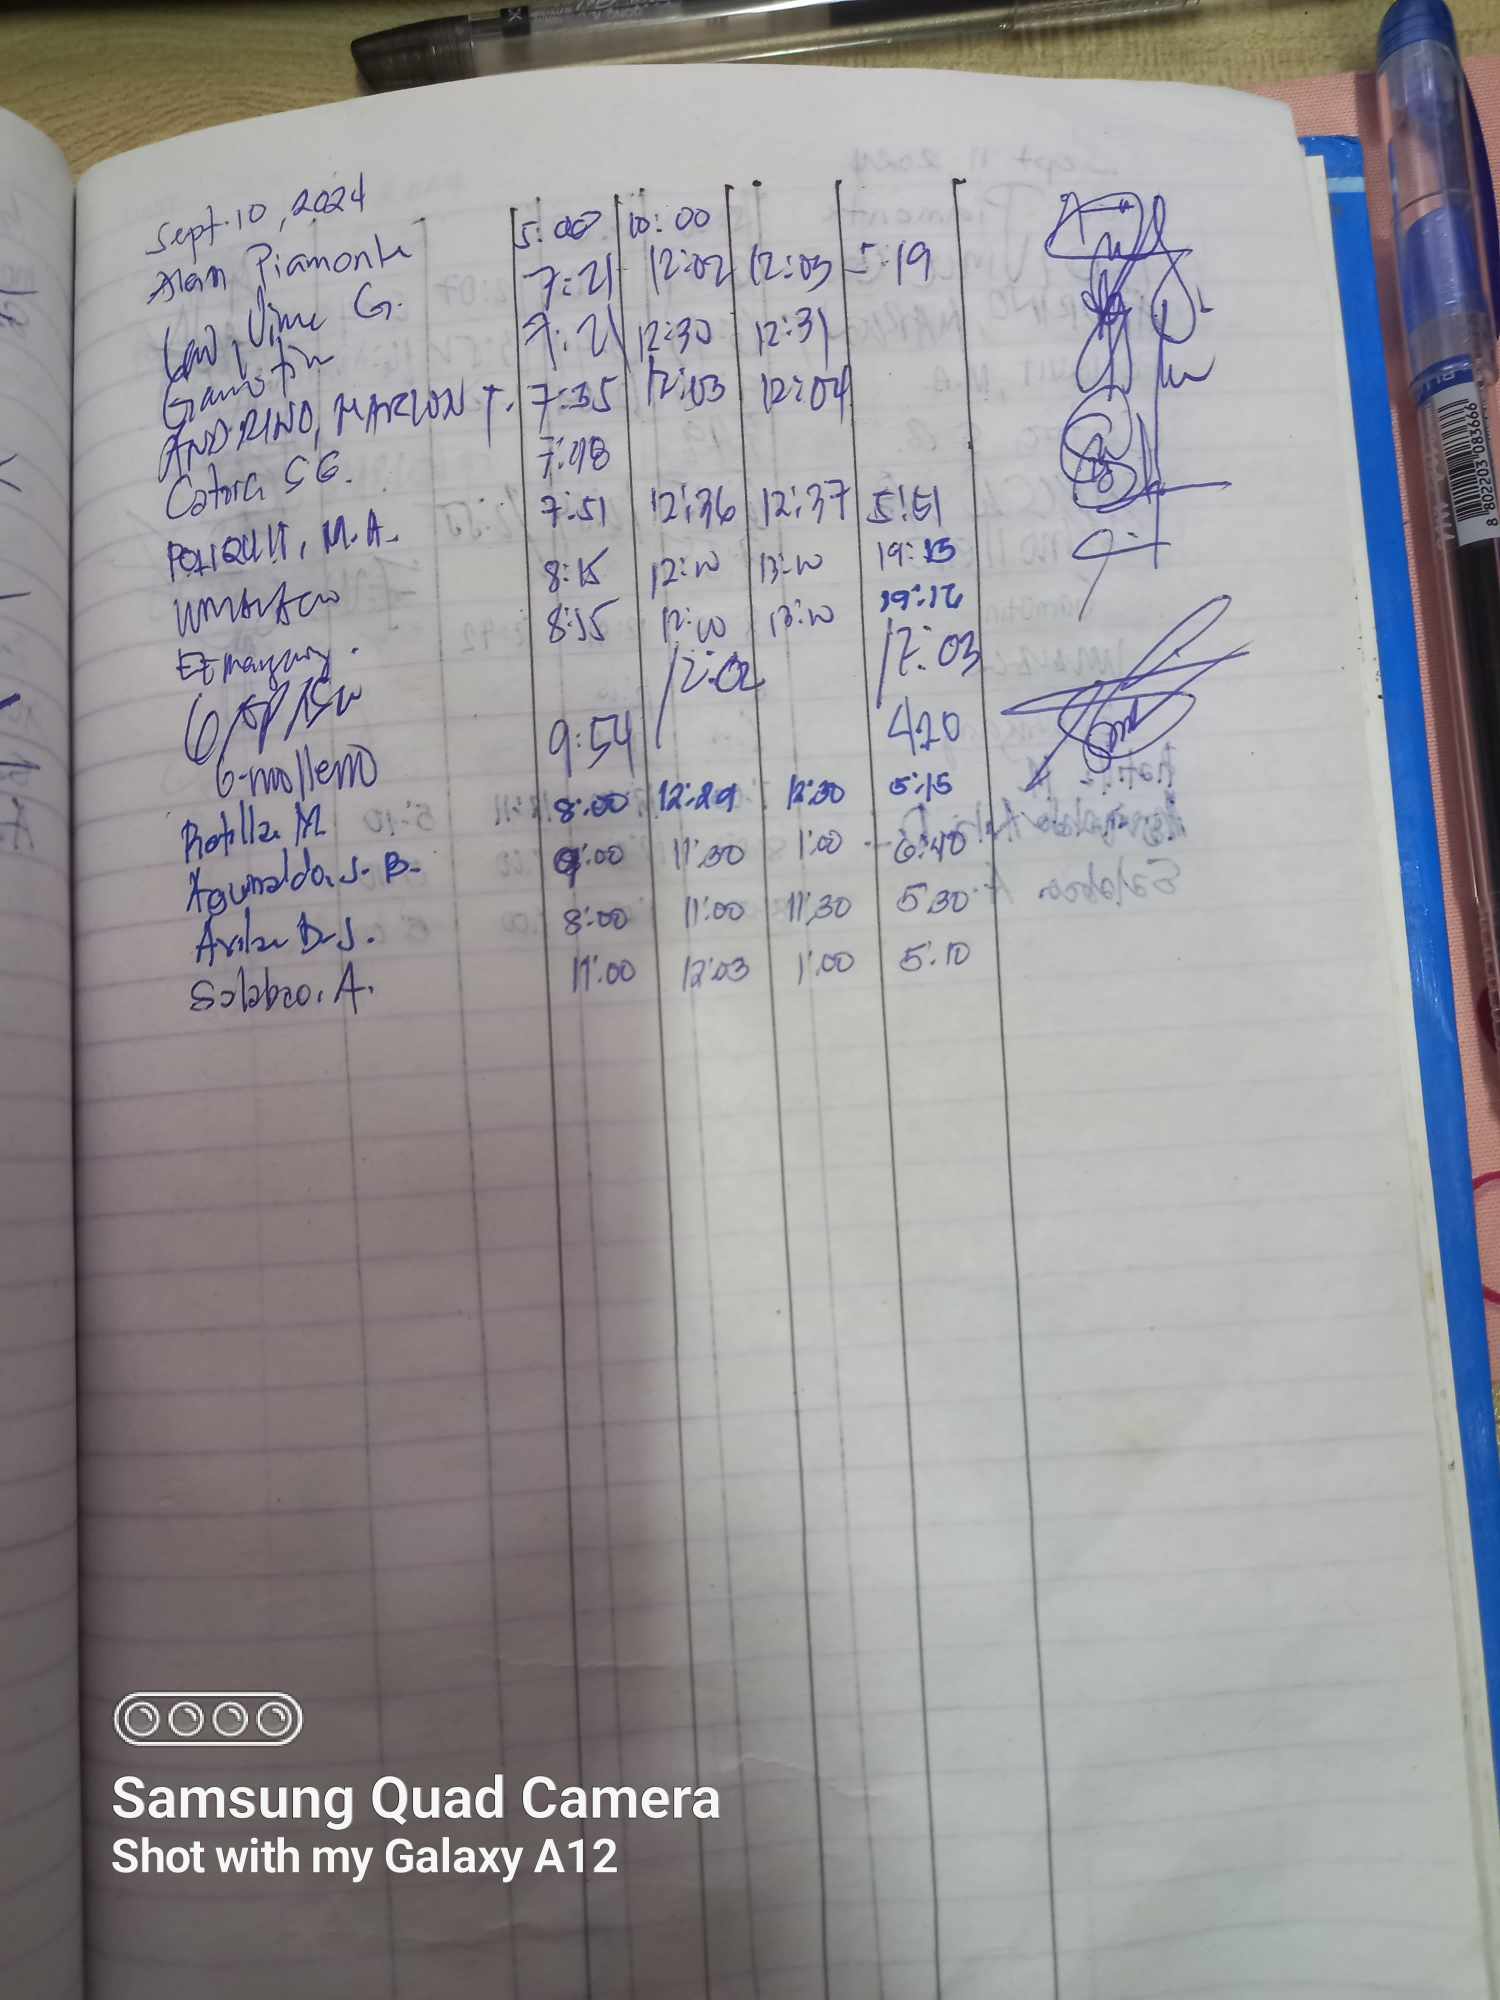 Sept. 10, 2024
Alan Piamonte 5:00 10:00
Law, Vime G. 7:21 12:02 12:03 5:19
Gamotin 7:21 12:30 12:31
ANDRINO, MARLON T. 7:35 12:03 12:04
Catora S G. 7:48
POLIQUIT, M.A. 7:51 12:36 12:37 5:51
8:15 12:10 13:10 19:15
8:15 12:10 13:10 19:16
12:02 17:03
G-molleno 9:54 420
Rotilla M 8:00 12:29 12:30 5:15
Aguinaldo, J. B. 9:00 11:30 1:00 6:40
Avila D-J. 8:00 11:00 11:30 5:30
Salabao. A. 11:00 12:03 1:00 5:10
8 802203 083666
Samsung Quad Camera
Shot with my Galaxy A12